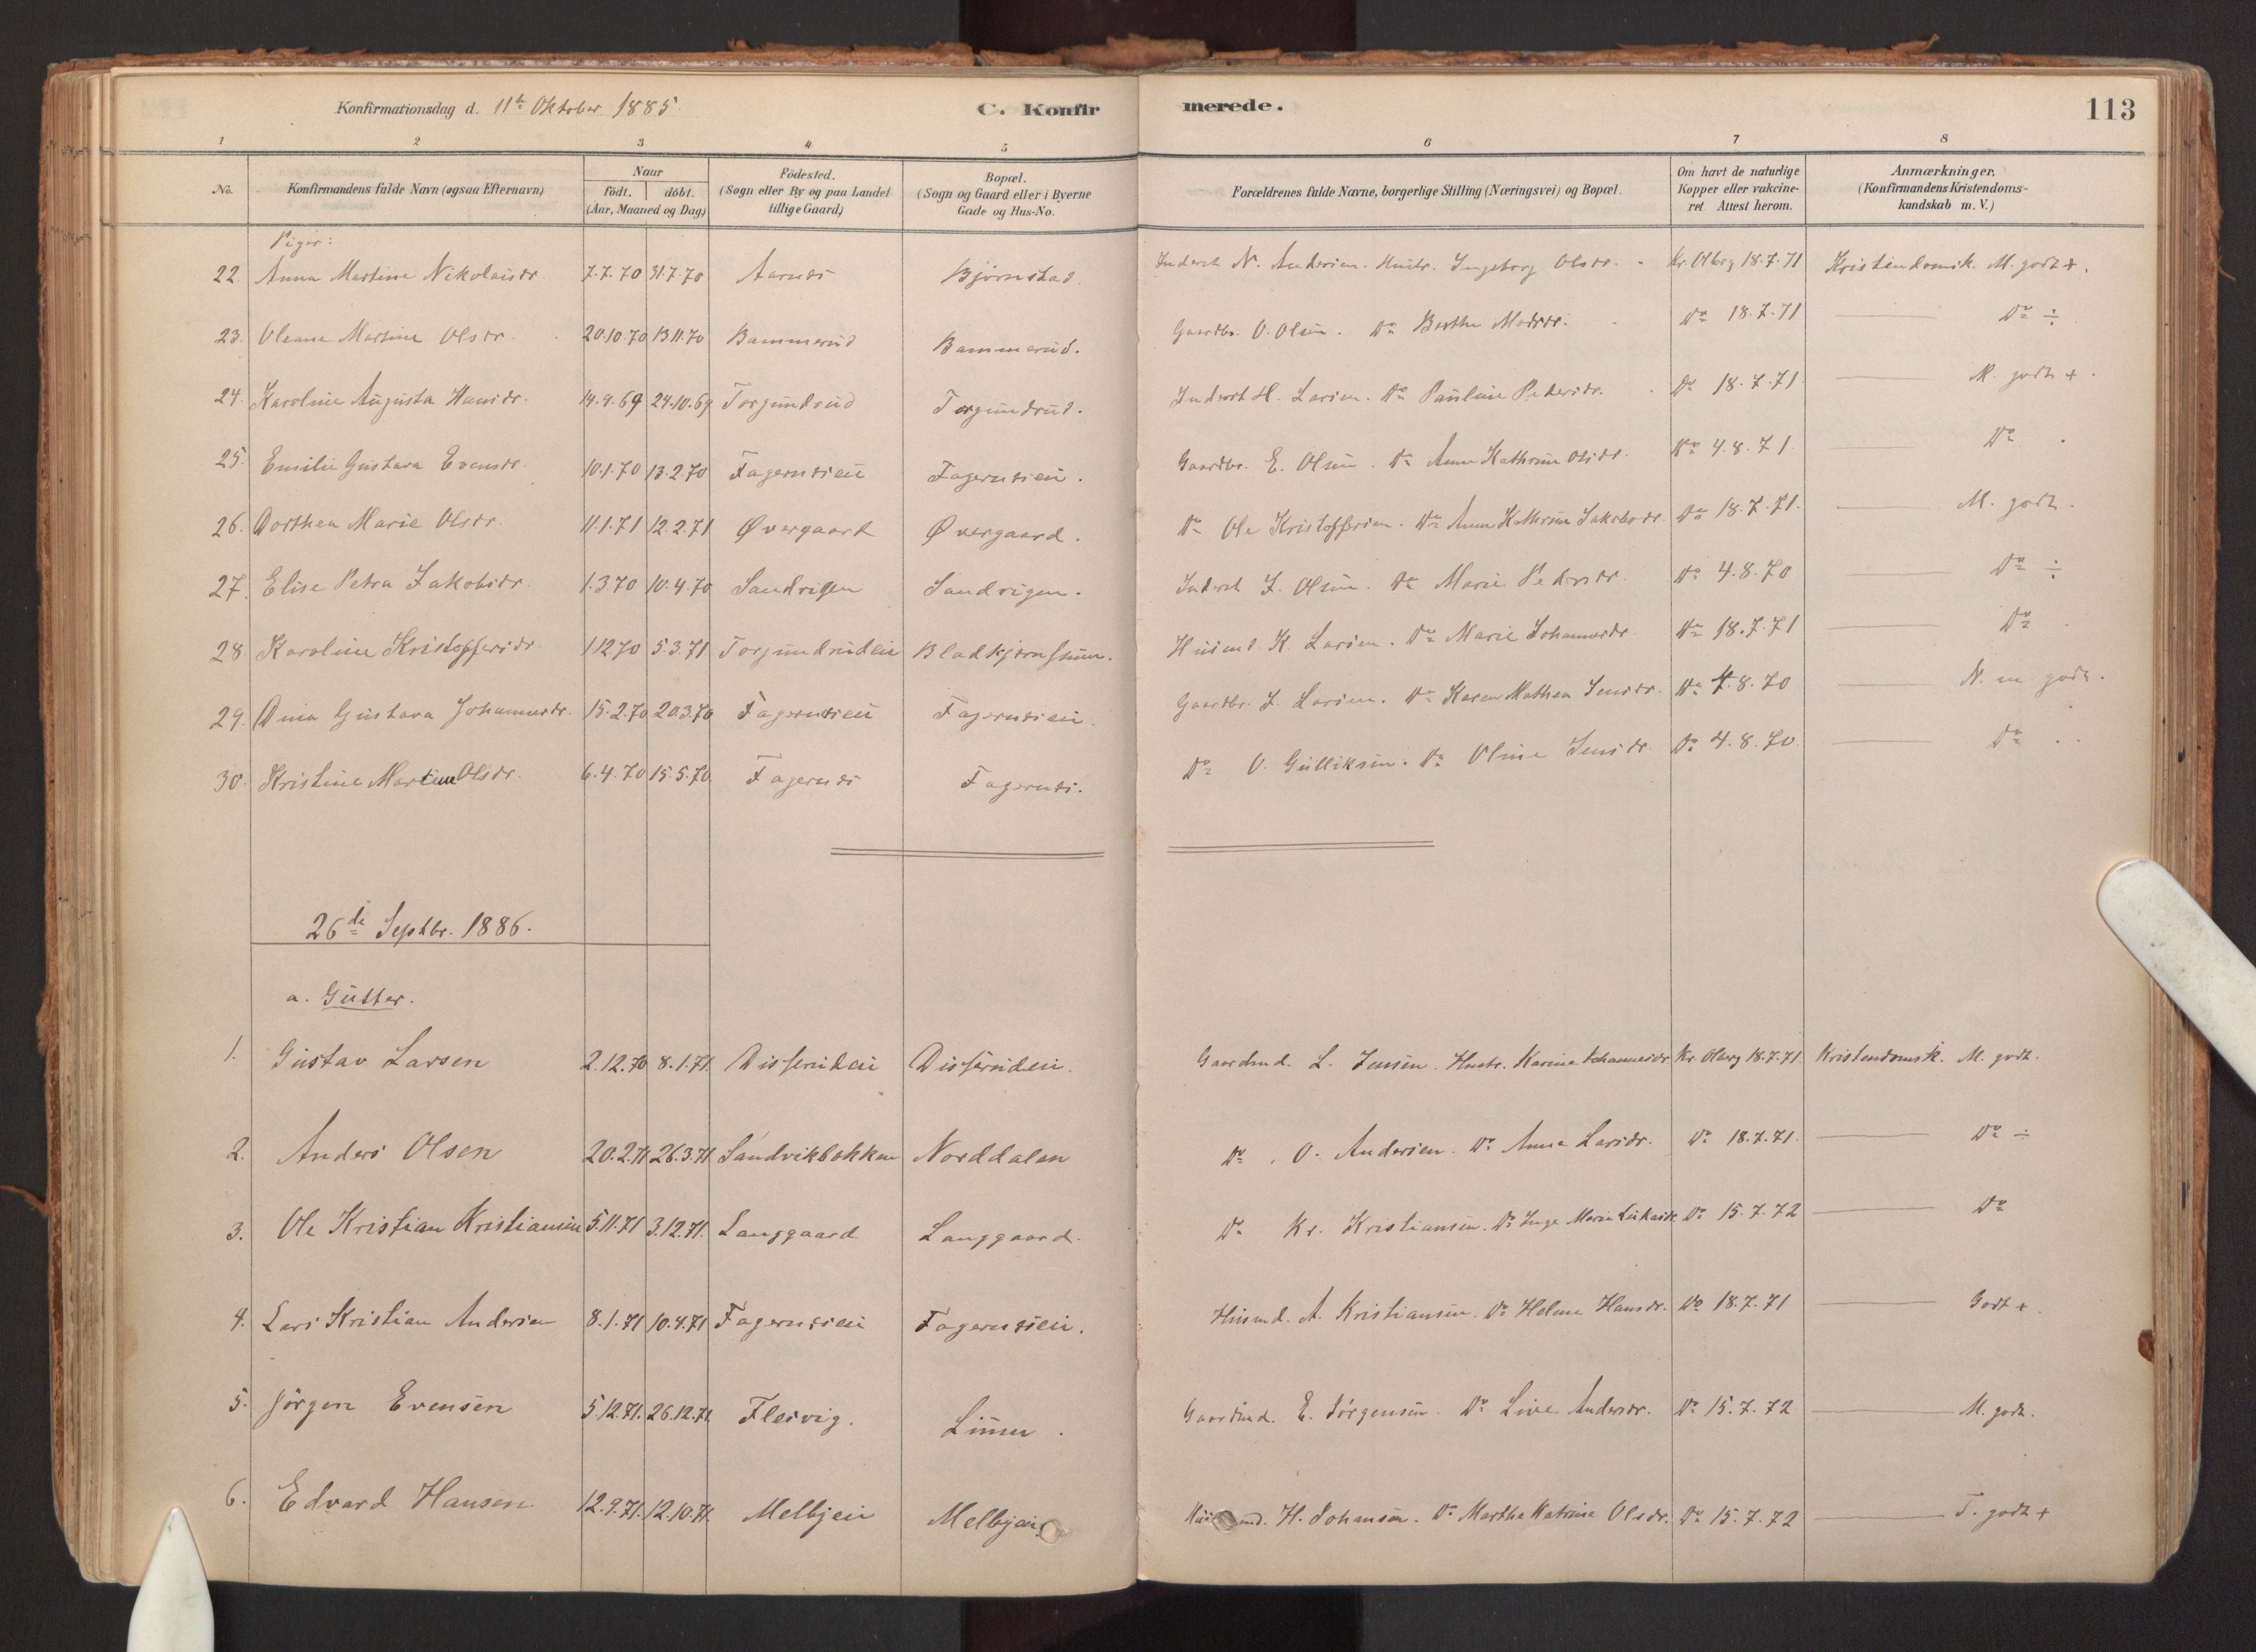 Konfirmationsdag d. 11te Oktober 1885. C. Konfirmerede. 113
1 2 3 4 5 6 7 8
No. Konfirmandens fulde Navn (ogsaa Efternavn) Naar födt. döbt. (Aar, Maaned og Dag) Födested. (Sogn eller By og paa Landet tillige Gaard) Bopæl. (Sogn og Gaard eller i Byerne Gade og Hus-No. Forældrenes fulde Navne, borgerlige Stilling (Næringsvei) og Bopæl. Om havt de naturlige Kopper eller vakcineret. Attest herom. Anmærkninger, (Konfirmandens Kristendomskundskab m. V.)
Piger:
22. Anna Martine Nikolaisdr. 7.7.70 31.7.70 Aarnes Bjørnstad. Inderst N. Andersen. Hustr. Ingeborg Olsdr. Kr. Olberg 18.7.71 Kristendomsk. M. godt +.
23. Oleane Martine Olsdr. 20.10.70 13.11.70 Bammerud Bammerud. Gaardbr. O. Olsen. Do Berthe Madsdr. Do 18.7.71 Do ÷
24. Karoline Augusta Hansdr. 14.9.69 24.10.69 Torgundrud Torgundrud. Inderst H. Larsen. Do Pauline Pedersdr. Do 18.7.71 M. godt +.
25. Emilie Gustava Evensdr. 10.1.70 13.2.70 Fagernæseie Fagernæseie. Gaardbr. E. Olsen. Do Anne Kathrine Olsdr. Do 4.8.71 Do .
26. Dorthea Marie Olsdr. 11.1.71 12.2.71 Øvergaard Øvergaard. Do Ole Kristoffersen. Do Anne Kathrine Jakobsdr. Do 18.7.71. M. godt.
27. Elise Petra Jakobsdr. 1.3.70 10.4.70 Sandvigen Sandvigen. Inderst J. Olsen. Do Marie Pedersdr. Do 4.8.70 Do ÷
28. Karoline Kristoffersdr. 1.12.70 5.3.71 Torgundrudeie Husmd. K. Larsen. Do Marie Johannesdr. Do 18.7.71 Do .
29. Dina Gustava Johannesdr. 15.2.70 20.3.70 Fagernæseie Fagernæseie. Gaardbr. J. Larsen. Do Karen Mathea Jensdr. Do 4.8.70 N. m. godt.
30. Kristine Martine Olsdr. 6.4.70 15.5.70 Fagernæs Fagernæs. Do O. Gulliksen. Do Oline Jensdr. Do 4.8.70. Do .
26de Septbr. 1886.
a. Gutter.
1. Gustav Larsen 2.12.70 8.1.71. Disserudeie Disserudeie. Gaardmd. L. Jensen. Hustr. Karine Johannesdr. Kr. Olberg 18.7.71 Kristendomsk. M. godt.
2. Anders Olsen 20.2.71 26.3.71 Sandvikbakken Norddalen Do . O. Andersen. Do Anna Larsdr. Do 18.7.71. Do ÷
3. Ole Kristian Kristiansen 5.11.71 3.12.71. Langgaard Langgaard. Do Kr. Kristiansen. Do Inge Marie Do 15.7.72 Do
4. Lars Kristian Andersen 8.1.71 10.4.71 Fagernæseie Fagernæseie. Husmd. A. Kristiansen. Do Helene Hansdr. Do 18.7.71 Godt +.
5. Jörgen Evensen 5.12.71. 26.12.71. Flesvig. Gaardmd. E. Jörgensen. Do Live Andersdr. Do 15.7.72 M. godt.
6. Edvard Hansen 12.9.71. 12.10.71. Melbyeie Melbyeie. H. Johansen. Do Marthe Katrine Olsdr. Do 15.7.72 T. godt +